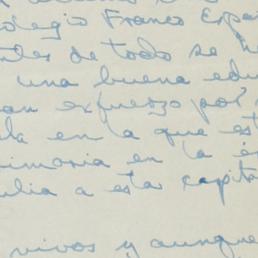 olegio Franco Espa
ntes de todo se h
una buena edu
an esfuerzo por
la en la que est
imaria en la é
ulia a esta capita
vivos y aunque